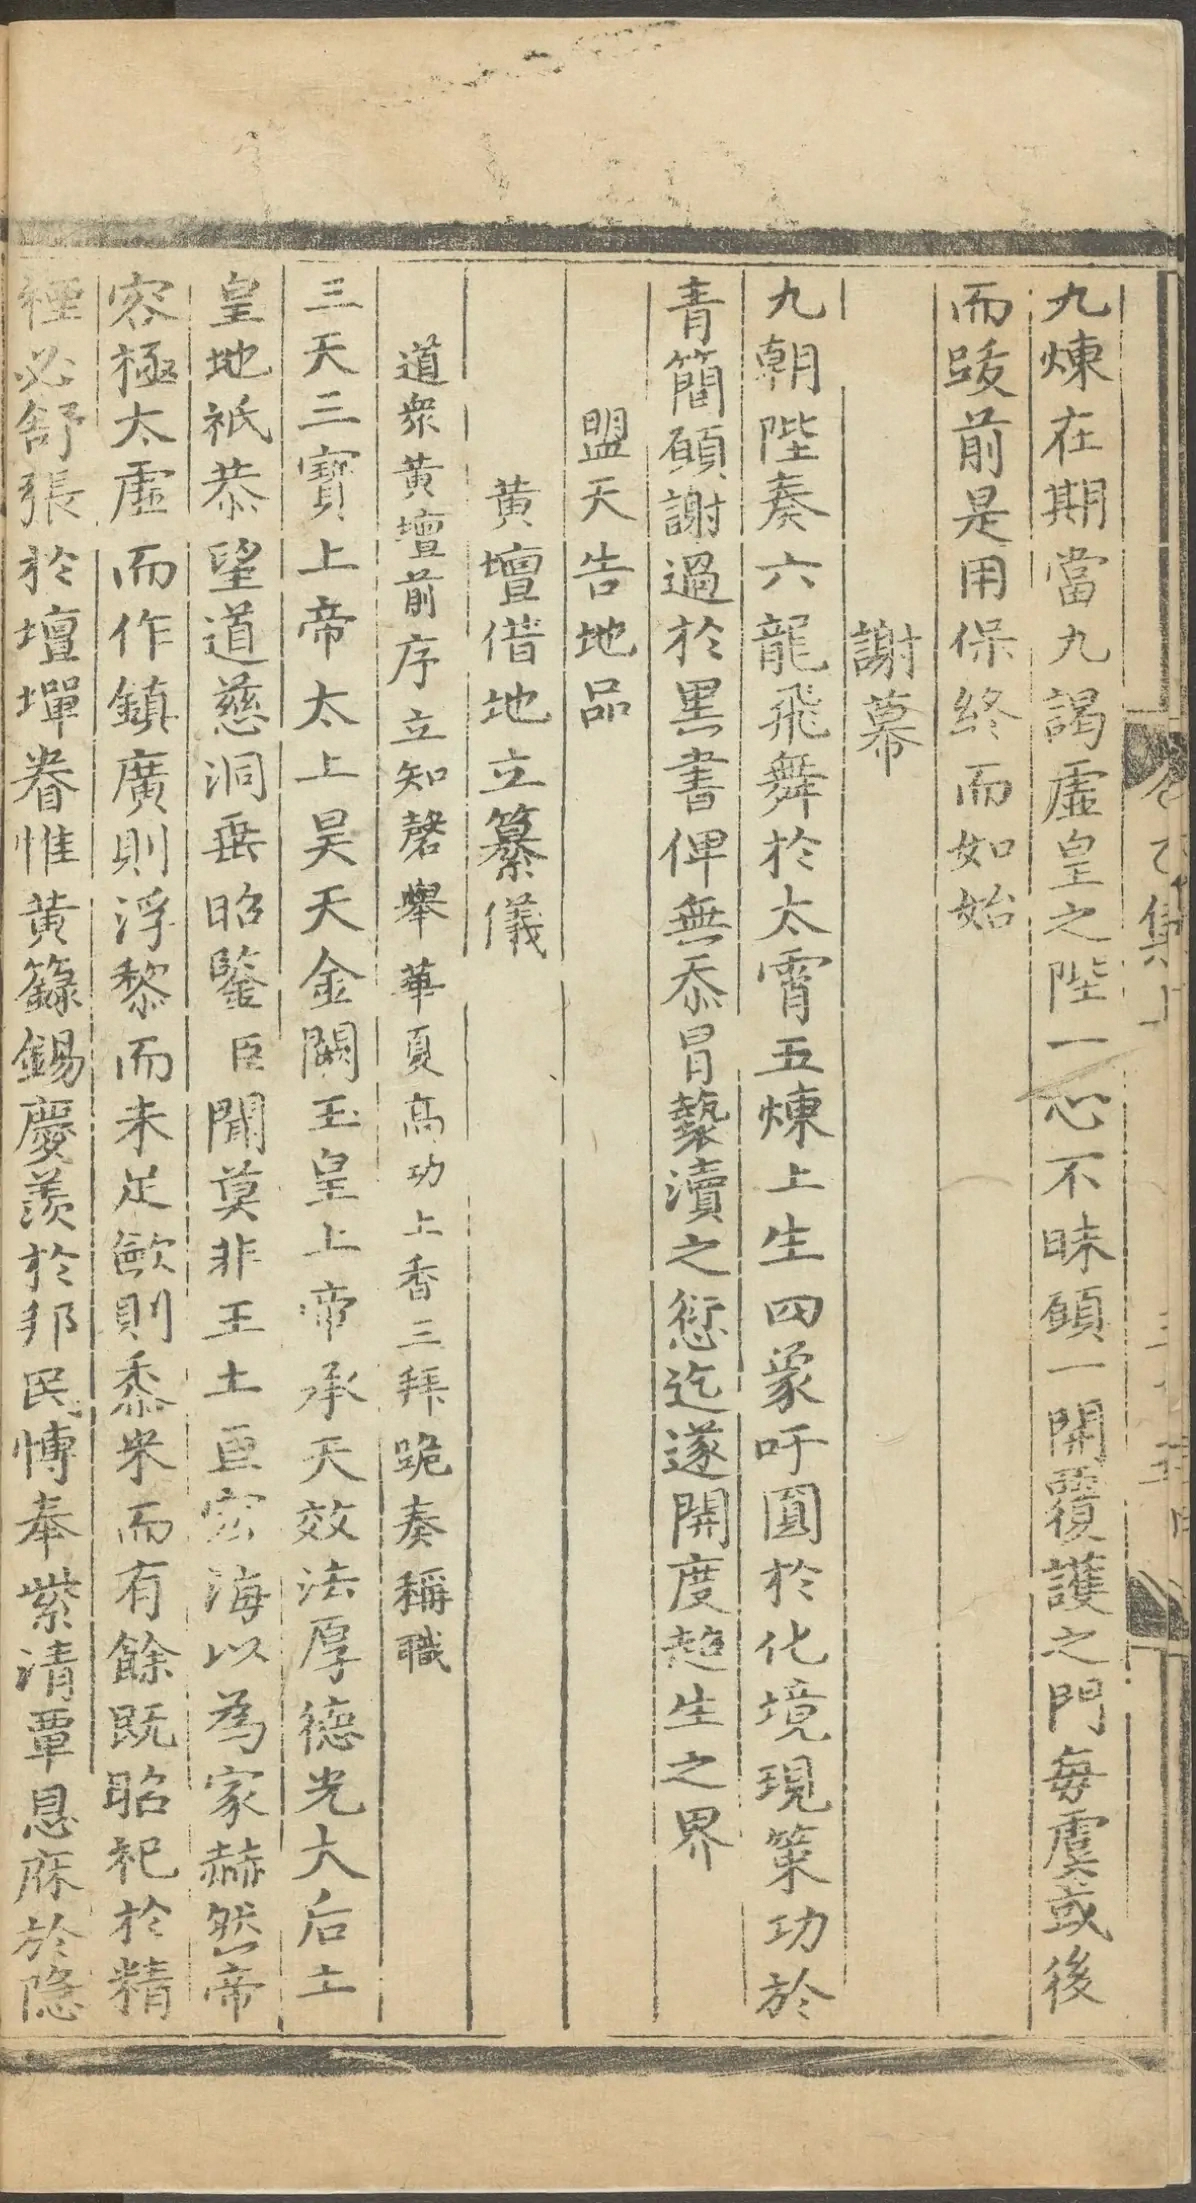 九煉在期當九謁虛皇之陛一心不昧願一開覆護之門每虞或後
而跋前是用保終而如始
謝幕
九朝陛奏六龍飛舞於太霄五煉上生四象吁圓於化境現策功於
青簡願謝過於黑書俾無忝冒褻瀆之愆迄遂開度超生之界
盟天告地品
黃壇借地立纂儀
道眾黃壇前序立知磬舉華夏高功上香三拜跪奏稱職
三天三寶上帝太上昊天金闕玉皇上帝承天效法厚德光大后土
皇地祇恭望道慈洞垂昭鑒臣聞莫非王土亘寰海以為家赫然帝
容極太虛而作鎮廣則浮黎而未足歛則黍米而有餘既昭祀於精
禋必舒張於壇墠眷惟黃籙錫慶羨於邦民愽奉紫清覃恩庥於隐